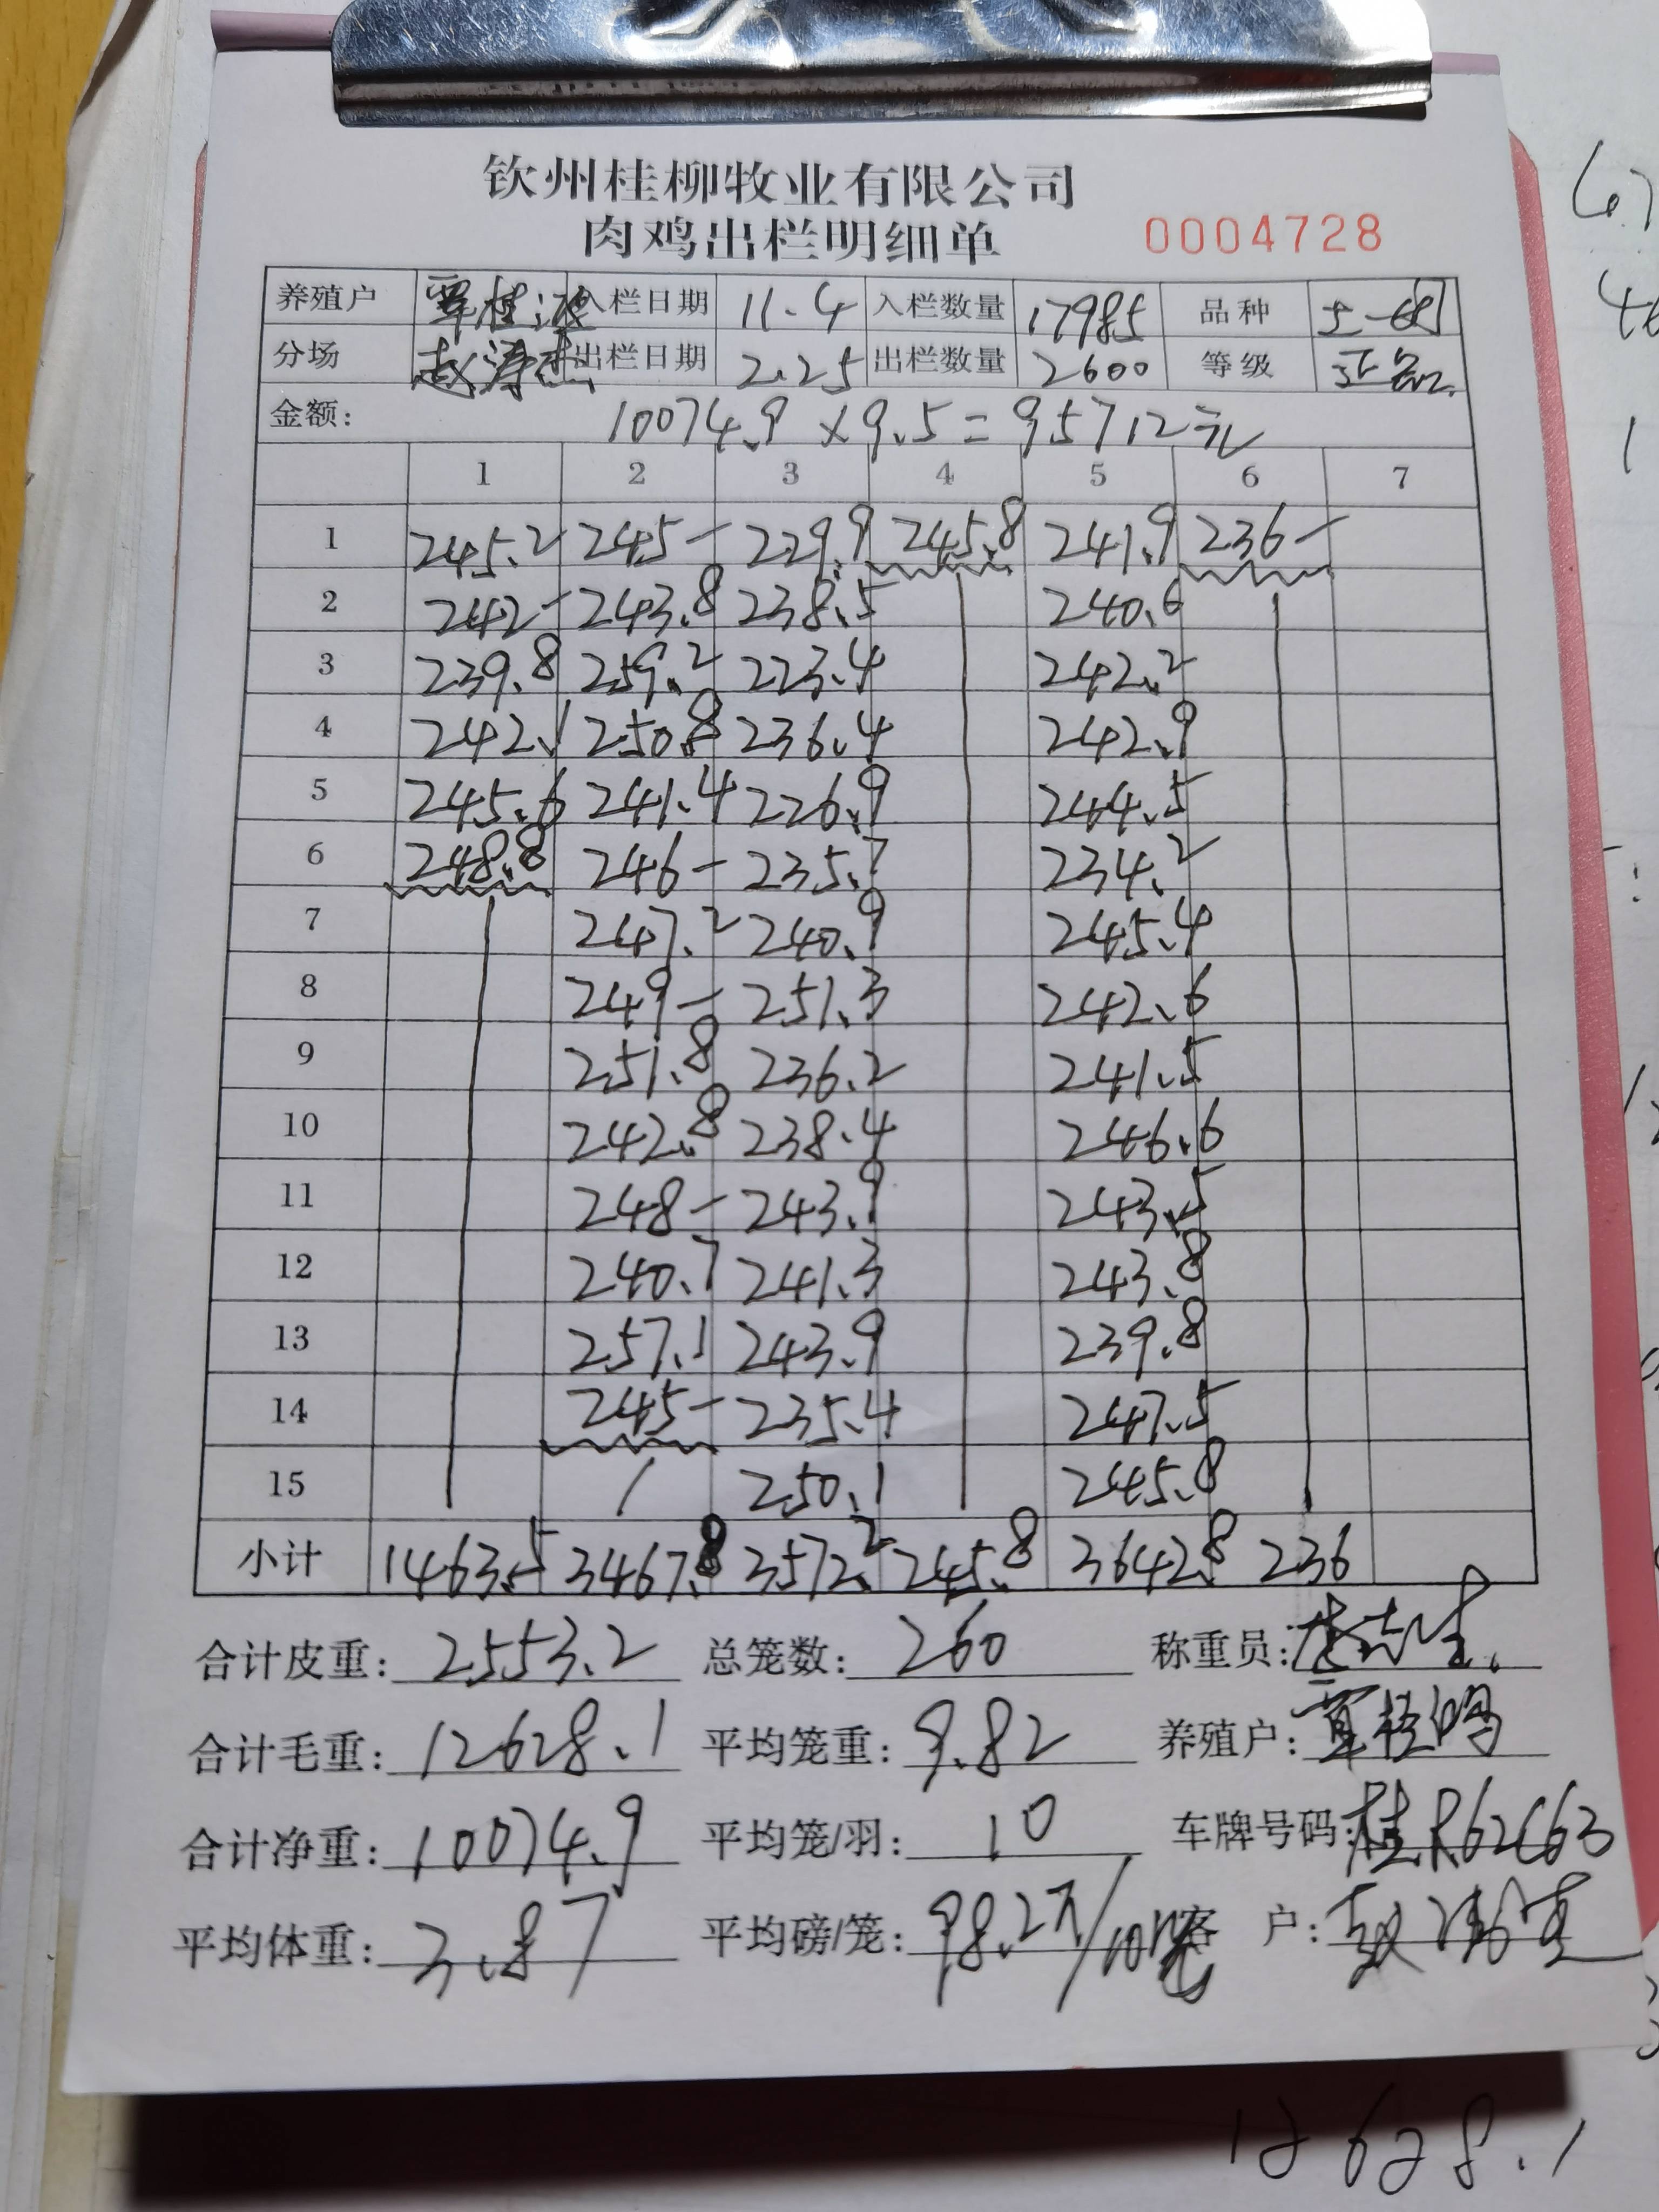 钦州桂柳牧业有限公司
肉鸡出栏明细单 0004728
养殖户 覃桂 入栏日期 11.4 入栏数量 17985 品种 土一
分场 赵 出栏日期 2.25 出栏数量 2600 等级 正品
金额: 10074.9×9.5=95712元
1 2 3 4 5 6 7
1 245.2 245- 229.9 245.8 241.9 236-
2 242- 243.8 238.5 240.6
3 239.8 259.2 223.4 242.2
4 242.1 250.8 236.4 242.9
5 245.6 241.4 226.9 244.5
6 248.8 246- 235.7 234.2
7 247.2 240.9 245.4
8 249- 251.3 242.6
9 251.8 236.2 241.5
10 242.8 238.4 246.6
11 248- 243.9 243.5
12 240.7 241.3 243.8
13 257.1 243.9 239.8
14 245- 235.4 247.5
15 / 250.1 245.8
小计 1463.5 3467.8 3572.2 245.8 3642.8 236
合计皮重: 2553.2 总笼数: 260 称重员:
合计毛重: 12628.1 平均笼重: 9.82 养殖户: 覃桂
合计净重: 10074.9 平均笼/羽: 10 车牌号码: 桂R62C63
平均体重: 3.87 平均磅/笼: 98.2斤/10笼 客户: 赵
12628.1